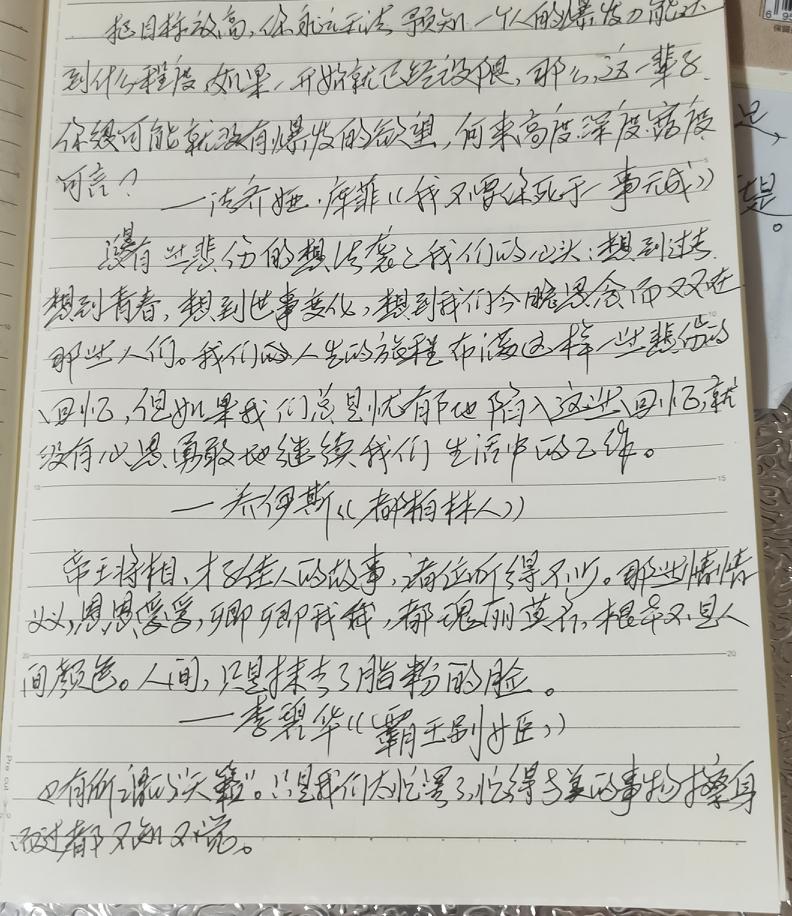 把目标放高，你永远无法预知一个人的爆发力能达
到什么程度，如果一开始就已经设限，那么，这一辈子
你很可能就没有爆发的欲望，何来高度、深度、宽度
可言？
——法齐娅·库菲《我不要你死于一事无成》
没有些悲伤的想法袭上我们的心头：想到过去，
想到青春，想到世事变化，想到我们今晚思念而又不在
那些人们。我们的人生的旅程布满这样一些悲伤的
回忆，但如果我们总是忧郁地陷入这些回忆，就
没有心思勇敢地继续我们生活中的工作。
——乔伊斯《都柏林人》
帝王将相、才子佳人的故事，诸位听得不少。那些情情
义义，恩恩爱爱，卿卿我我，都瑰丽莫名，根本不是人
间颜色。人间，只是抹去了脂粉的脸。
——李碧华《霸王别姬》
有所谓的“天籁”。只是我们太忙碌了，忙得与美的事物擦身
而过都不知不觉。
足，
是
。